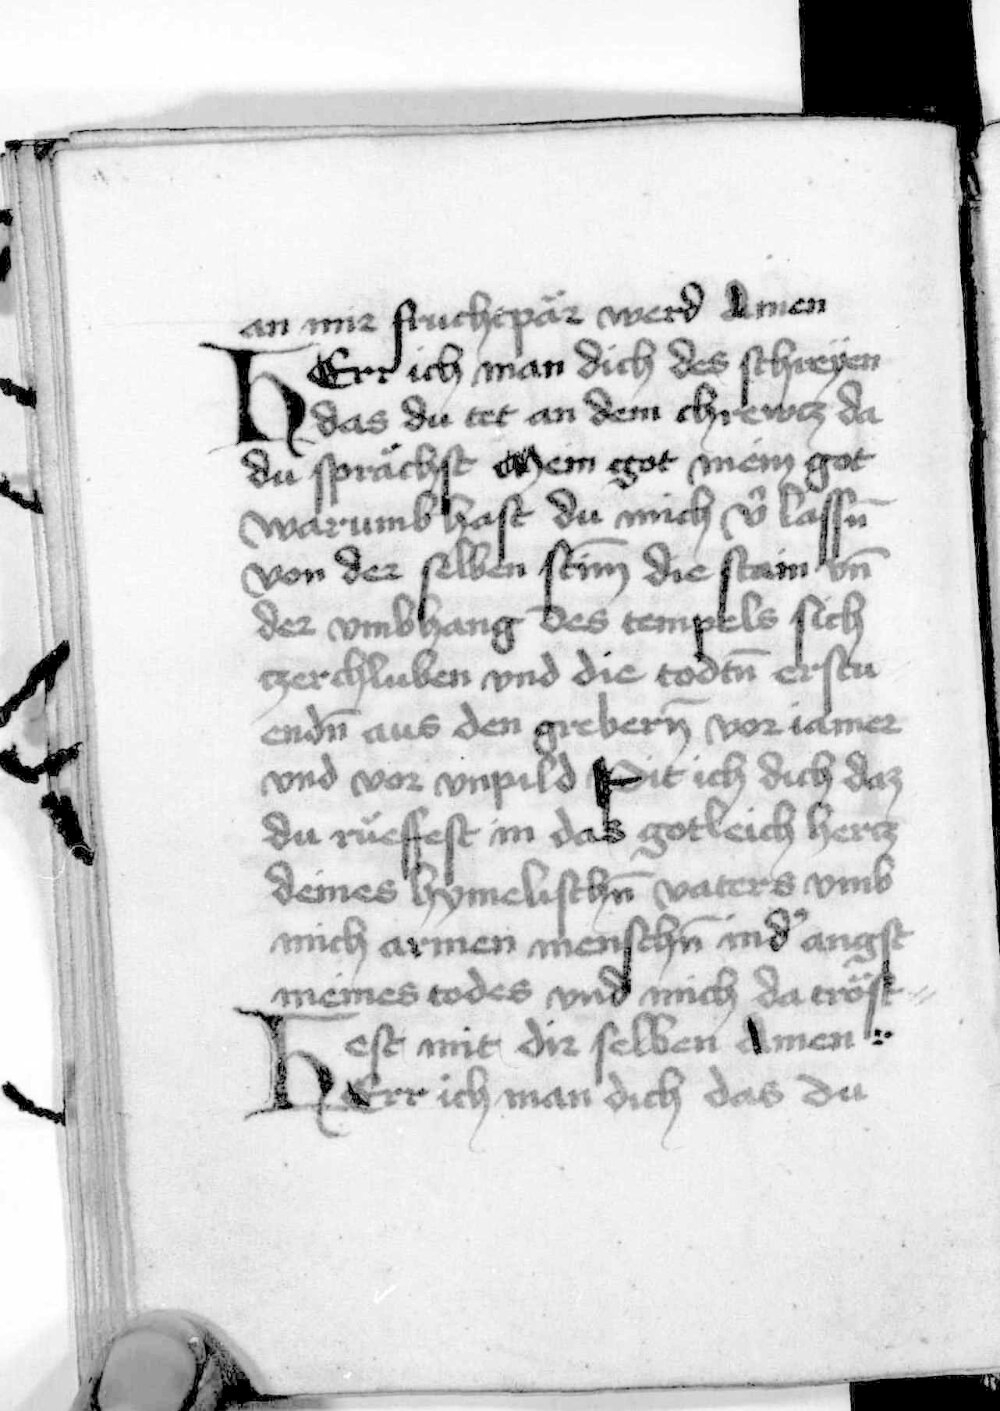 an mir fruchtpär werd Amen
HErr ich man dich des schreÿen
das du tet an dem chrewcz da
du sprächst Mein got mein got
warumb hast du mich v̾ lassn̄
von der selben stim̄ die stain vn̄
der vmbhang des tempels sich
czerchluben vnd die todtn̄ erstu
endn̄ aus den grebern̄ vor iamer
vnd vor vnpild Pit ich dich daz
du rüeffest in das gotleich hercz
deines hymelischn̄ vaters vmb
mich armen menschn̄ in d̾ angst
meines todes vnd mich da tröst
est mit dir selben Amen
HErr ich man dich das du